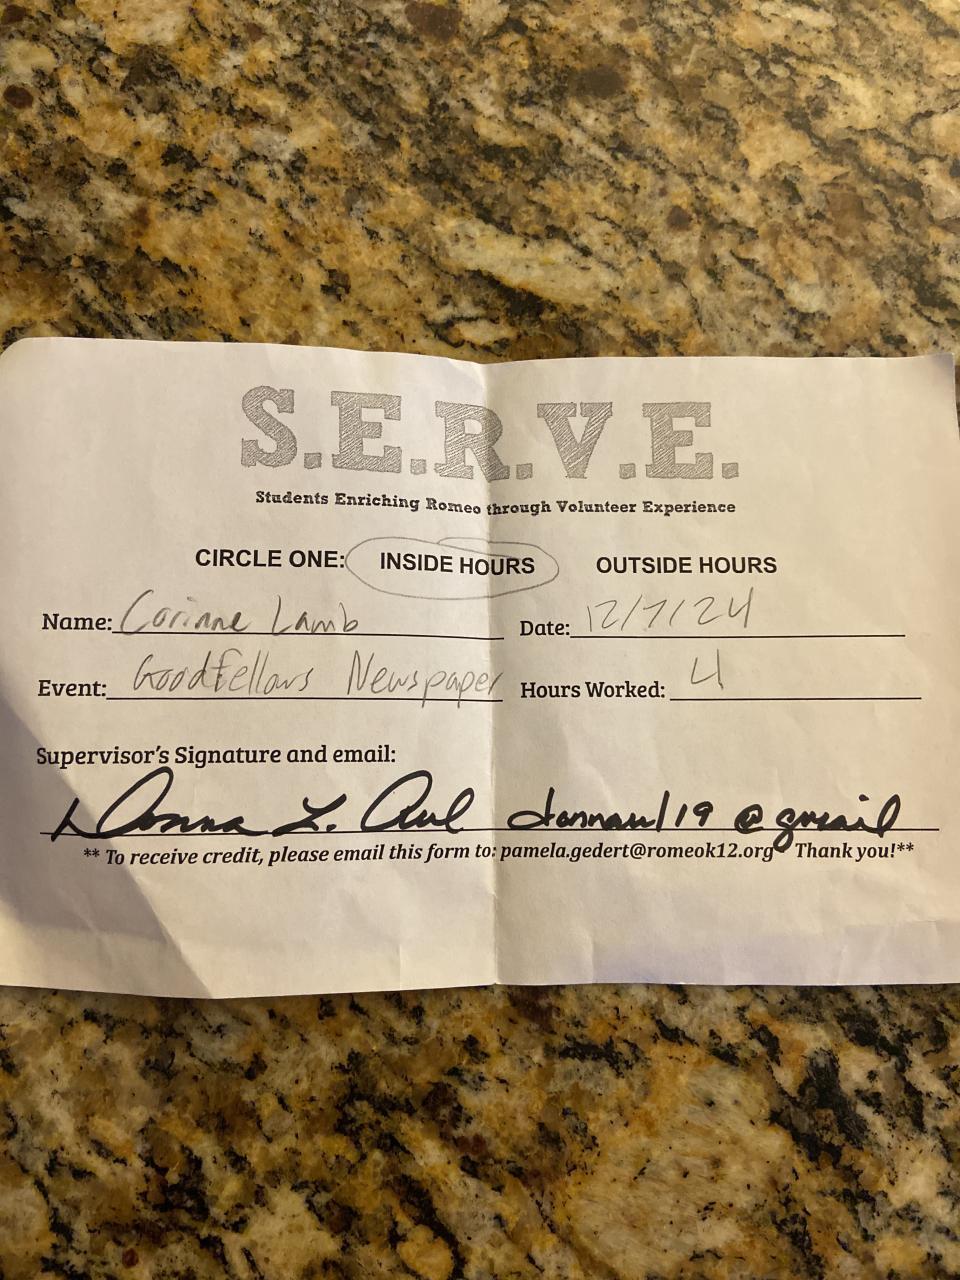 S.E.R.V.E.
Students Enriching Romeo through Volunteer Experience
CIRCLE ONE: INSIDE HOURS OUTSIDE HOURS
Name: Corinne Lamb Date: 12/7/24
Event: Goodfellows Newspaper Hours Worked: 4
Supervisor's Signature and email:
Donna L. @gmail
** To receive credit, please email this form to: pamela.gedert@romeok12.org Thank you!**